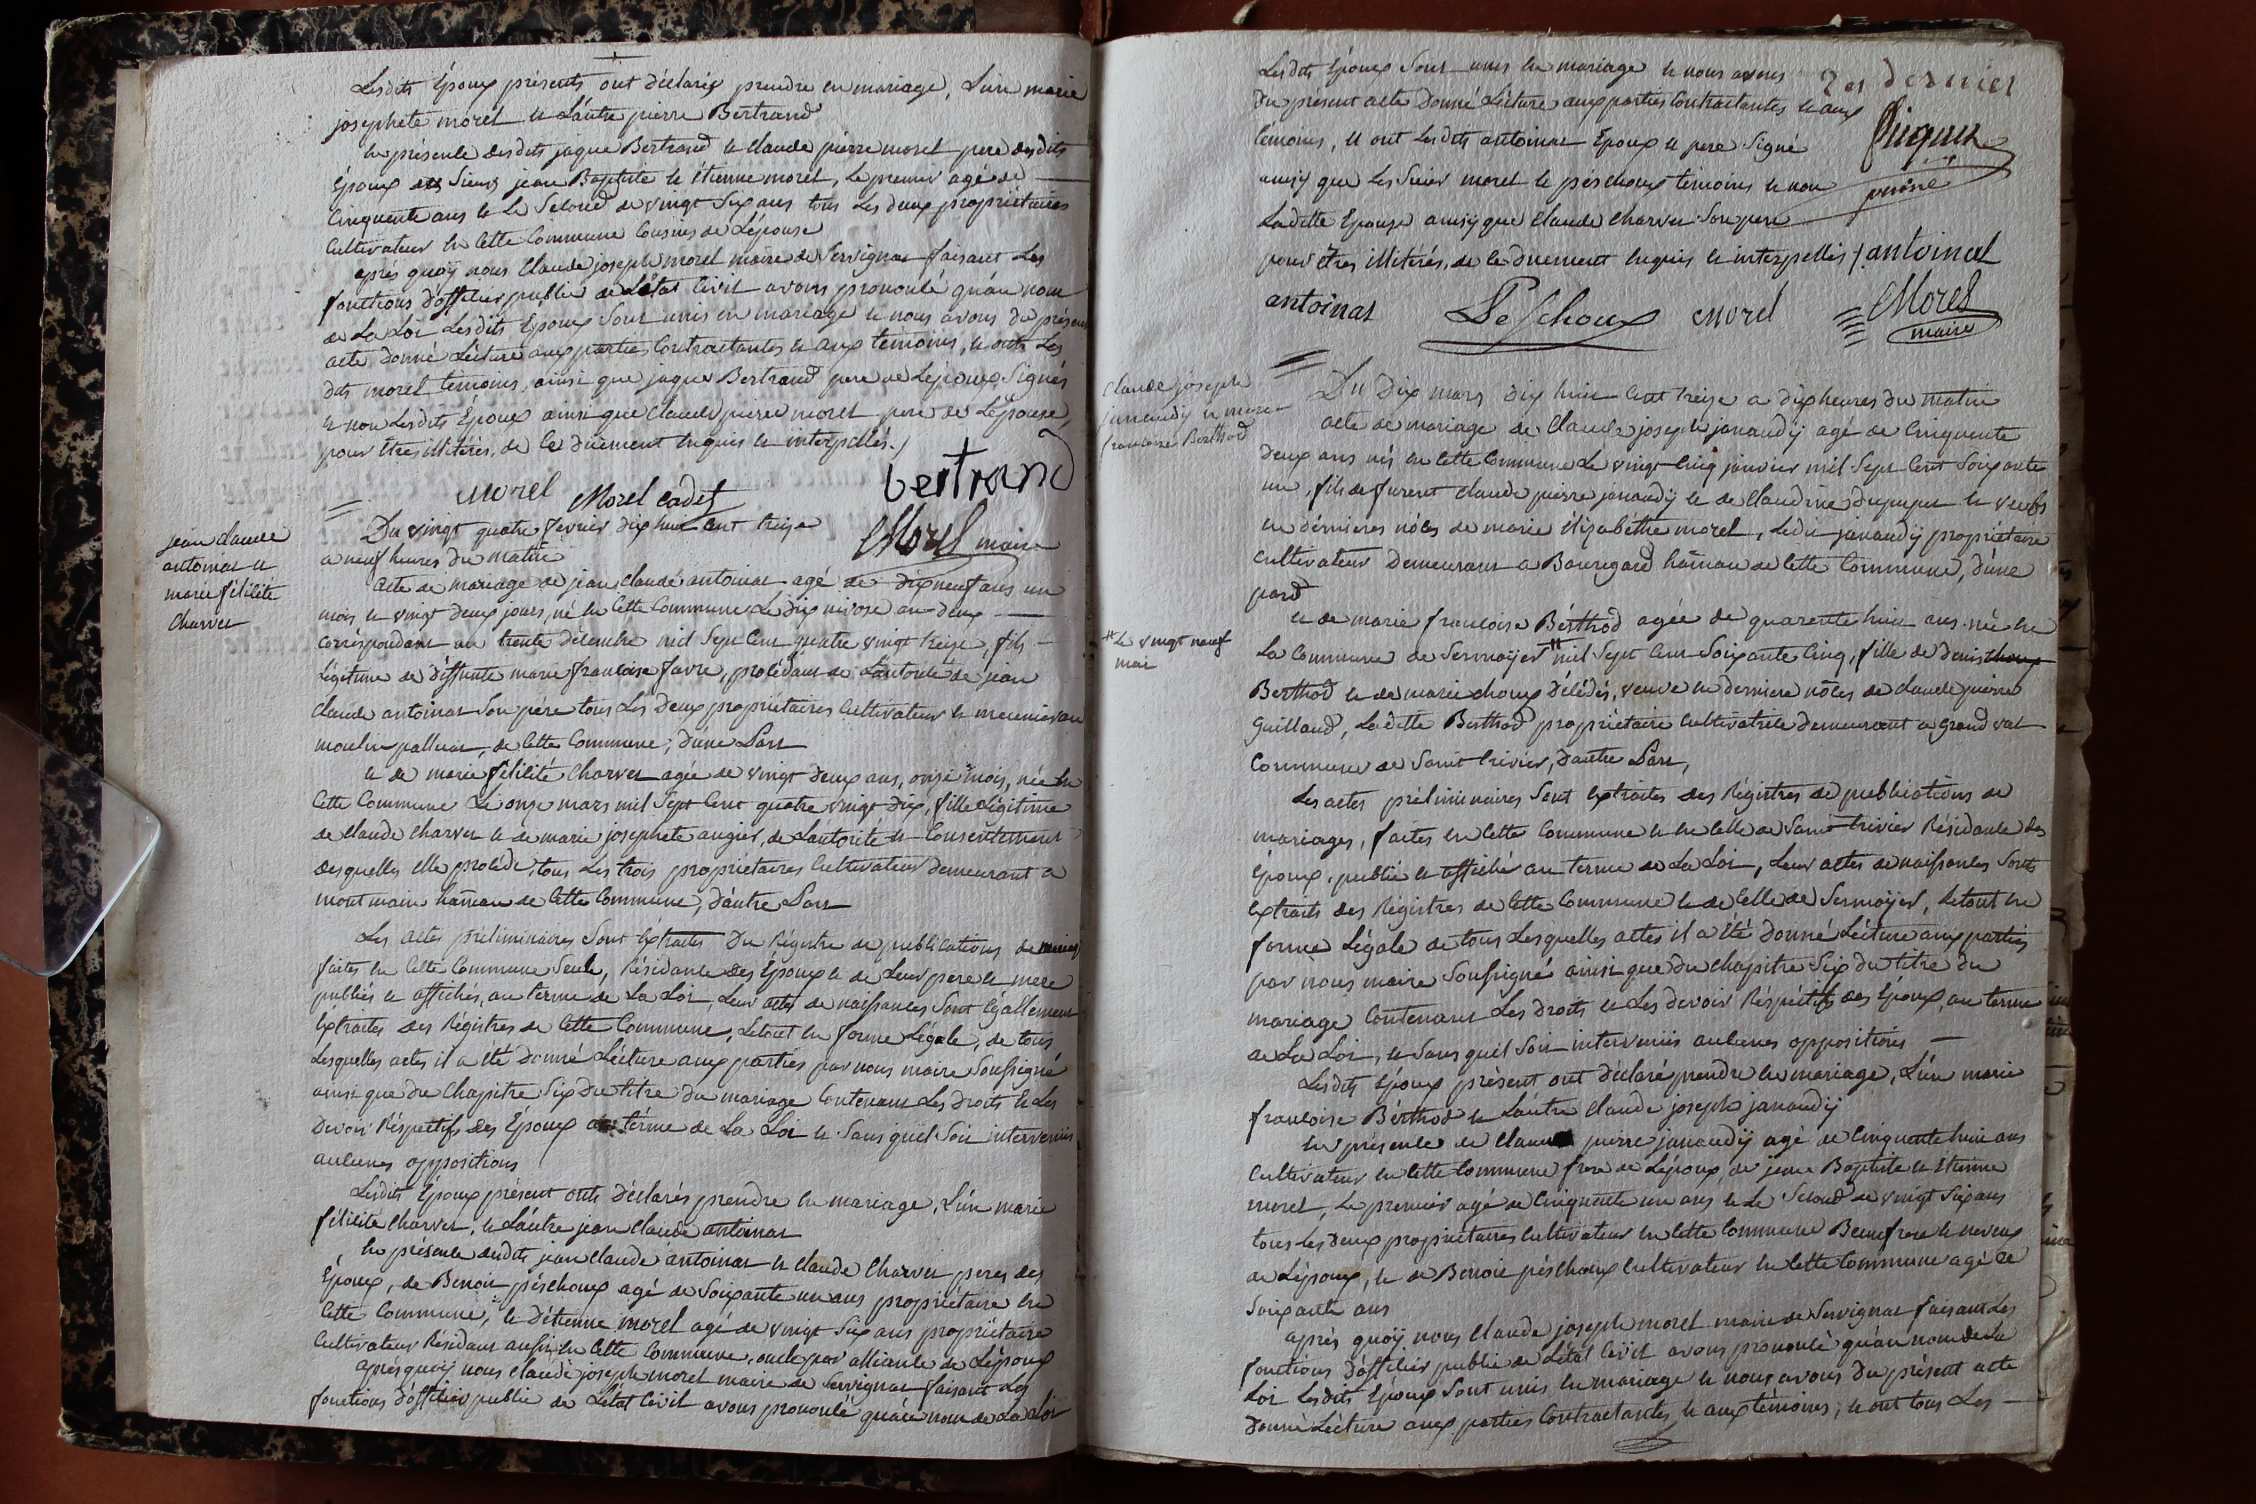 Lesdits Epoux présents ont déclaré prendre en mariage, L'un marie
josephete morel et L'autre pierre Bertrand
en présence desdits jaque Bertrand et Claude pierre morel pere desdits
Epoux des Sieurs jean Baptiste et Etienne morel, Le premier agé de
Cinquente ans et Le Second de vingt Six ans tous Les deux propriétaires
Cultivateur en Cette Commune Cousins de L'épouse
après quoÿ nous Claude joseph morel maire de Servignat faisant Les
fonctions d'officier public de L'état Civil avons prononcé qu'au nom
de La Loi Lesdits Epoux Sont unis en mariage et nous avons du présent
acte donné Lécture aux parties Contractantes et aux témoins, et ont Les
dits morel témoins, ainsi que jaque Bertrand pere de L'epoux Signés
et non Lesdits Epoux ainsi que Claude pierre morel pere de L'épouse
pour êtres illitérés, de Ce duement enquis et interpellés./
morel Morel cadet bertrand
Morel maire
jean claude
antoinat et
marie félicité
Charvet
Du vingt quatre fevrier dix huit cent treize
a neuf heures du matin
acte de mariage de jean Claude antoinat agé de dix neuf ans un
mois et vingt deux jours, né en Cette Commune Le dix nivose an deux
correspondant au trente décembre mil Sept Cent quatre vingt treize, fils
Légitime de déffunte marie francoise favre, procédant de L'autorité de jean
Claude antoinat Son père tous Les deux propriétaires Cultivateur et meunier au
moulin palluat, de Cette Commune, d'une Part
et de marie félicité Charvet agée de vingt deux ans, onze mois, née en
Cette Commune Le onze mars mil Sept Cent quatre vingt dix, fille Légitime
de Claude Charvet et de marie josephete augier, de L'autorité et Consentement
desquelles elle procède, tous Les trois propriétaires Cultivateur demeurant a
mont main hameau de Cette Commune, d'autre Part
Les actes préliminaires Sont Extraits du Régistre de publications de
faites en Cette Commune Seule, Résidance des Epoux et de Leur pere et mere
publiés et affichés, au terme de La Loi, Leur actes de naissances Sont Egallement
Extraites des Régistres de Cette Commune, Letout en forme Légale, de tous
Lesquelles actes il a été donné Lécture aux parties par nous maire Soussigné
ainsi que du Chapitre Six du titre du mariage Contenant Les droits et Les
Devoir Réspectifs des Epoux au térme de La Loi et Sans quil Soit intervenus
aucunes oppositions
Lesdits Epoux présent onts déclarés prendre en mariage, L'un marie
félicité Charvet, et L'autre jean Claude antoinat
en présence desdits jean Claude antoinat et Claude Charvet peres des
Epoux, de Benoit péschoux agé de Soixante un ans propriétaire en
Cette Commune, et d'étienne morel agé de vingt Six ans propriétaire
Cultivateur Résidant aussi en Cette Commune, oncle par alliance de L'époux
après quoÿ nous Claude joseph morel maire de Servignat faisant Les
fonctions d'officier public de L'état Civil avons prononcé qu'au nom de La Loi
Lesdits Epoux Sont unis en mariage et nous avons
du présent acte Donné Lécture aux parties Contractantes et aux
témoins, et ont Lesdits antoinat Epoux et pere Signé
ainsy que Les Sieur morel et péschoux témoins et non
Ladette Epouse ainsy que Claude Charvet Son pere
pour êtres illitérés, de Ce duement enquis et interpellés /.
2es dernier
antoinat
antoinat PeSchoux morel Morel
maire
Claude joseph
janaudÿ et marie
francoise Berthod
Du Dix mars dix huit Cent treize a dix heures du matin
acte de mariage de Claude joseph janaudÿ agé de Cinquente
deux ans nés en Cette Commune Le vingt Cinq janvier mil Sept Cent Soixante
un, fils de furent Claude pierre janaudÿ et de Claudine dupupet et veufs
en dérnieres nôces de marie élizabéthe morel, Ledit janaudÿ propriétaire
Cultivateur Demeurant a Bauregard hameau de Cette Commune, d'une
part
et de marie francoise Bérthod agée de quarente huit ans née en
La Commune de Sermoÿer # mil Sept Cent Soixante Cinq, fille de denis choux
# Le vingt neuf
mai
Berthod et de marie choux décédés, veuve en derniere nôces de Claude pierre
Guilland, Ladette Berthod propriétaire Cultivatrice demeurant a Grand val
Commune de Saint trivier, d'autre Part,
Les actes préliminaires Sont Extraites des Régistres de publications de
mariages, faites en Cette Commune et en Celle de Saint trivier Résidance des
Epoux, publié et affiché au terme de La Loi, Leur actes de naissances Sont
Extraits des Régistres de Cette Commune et de Celle de Sermoÿer, Letout en
forme Légale de tous Lesquelles actes il a été donné Lécture aux parties
par nous maire Soussigné ainsi que du Chapitre Six du titre du
mariage Contenant Les droits et Les devoir Réspéctifs des Epoux, au terme
de La Loi, et Sans quil Soit intervenus aucunes oppositions
Lesdits Epoux présent ont déclaré prendre en mariage, L'un marie
francoise Bérthod et L'autre Claude joseph janaudÿ
en présence de Claude pierre janaudÿ agé de Cinquente huit ans
Cultivateur en Cette Commune frere de L'époux, de jean Baptiste et Etienne
morel, Le premier agé de Cinquente un ans et Le Second de vingt Six ans
tous Les deux propriétaires Cultivateur en Cette Commune Beaufrere et neveux
de L'époux, et de Benoit péschoux Cultivateur en Cette Commune agé de
Soixante ans
après quoÿ nous Claude joseph morel maire de Servignat faisant Les
fonctions d'officier public de L'état Civil avons prononcé qu'au nom de La
Loi Lesdits Epoux Sont unis en mariage et nous avons du présent acte
Donné Lécture aux parties Contractantes et aux témoins, et ont tous Les